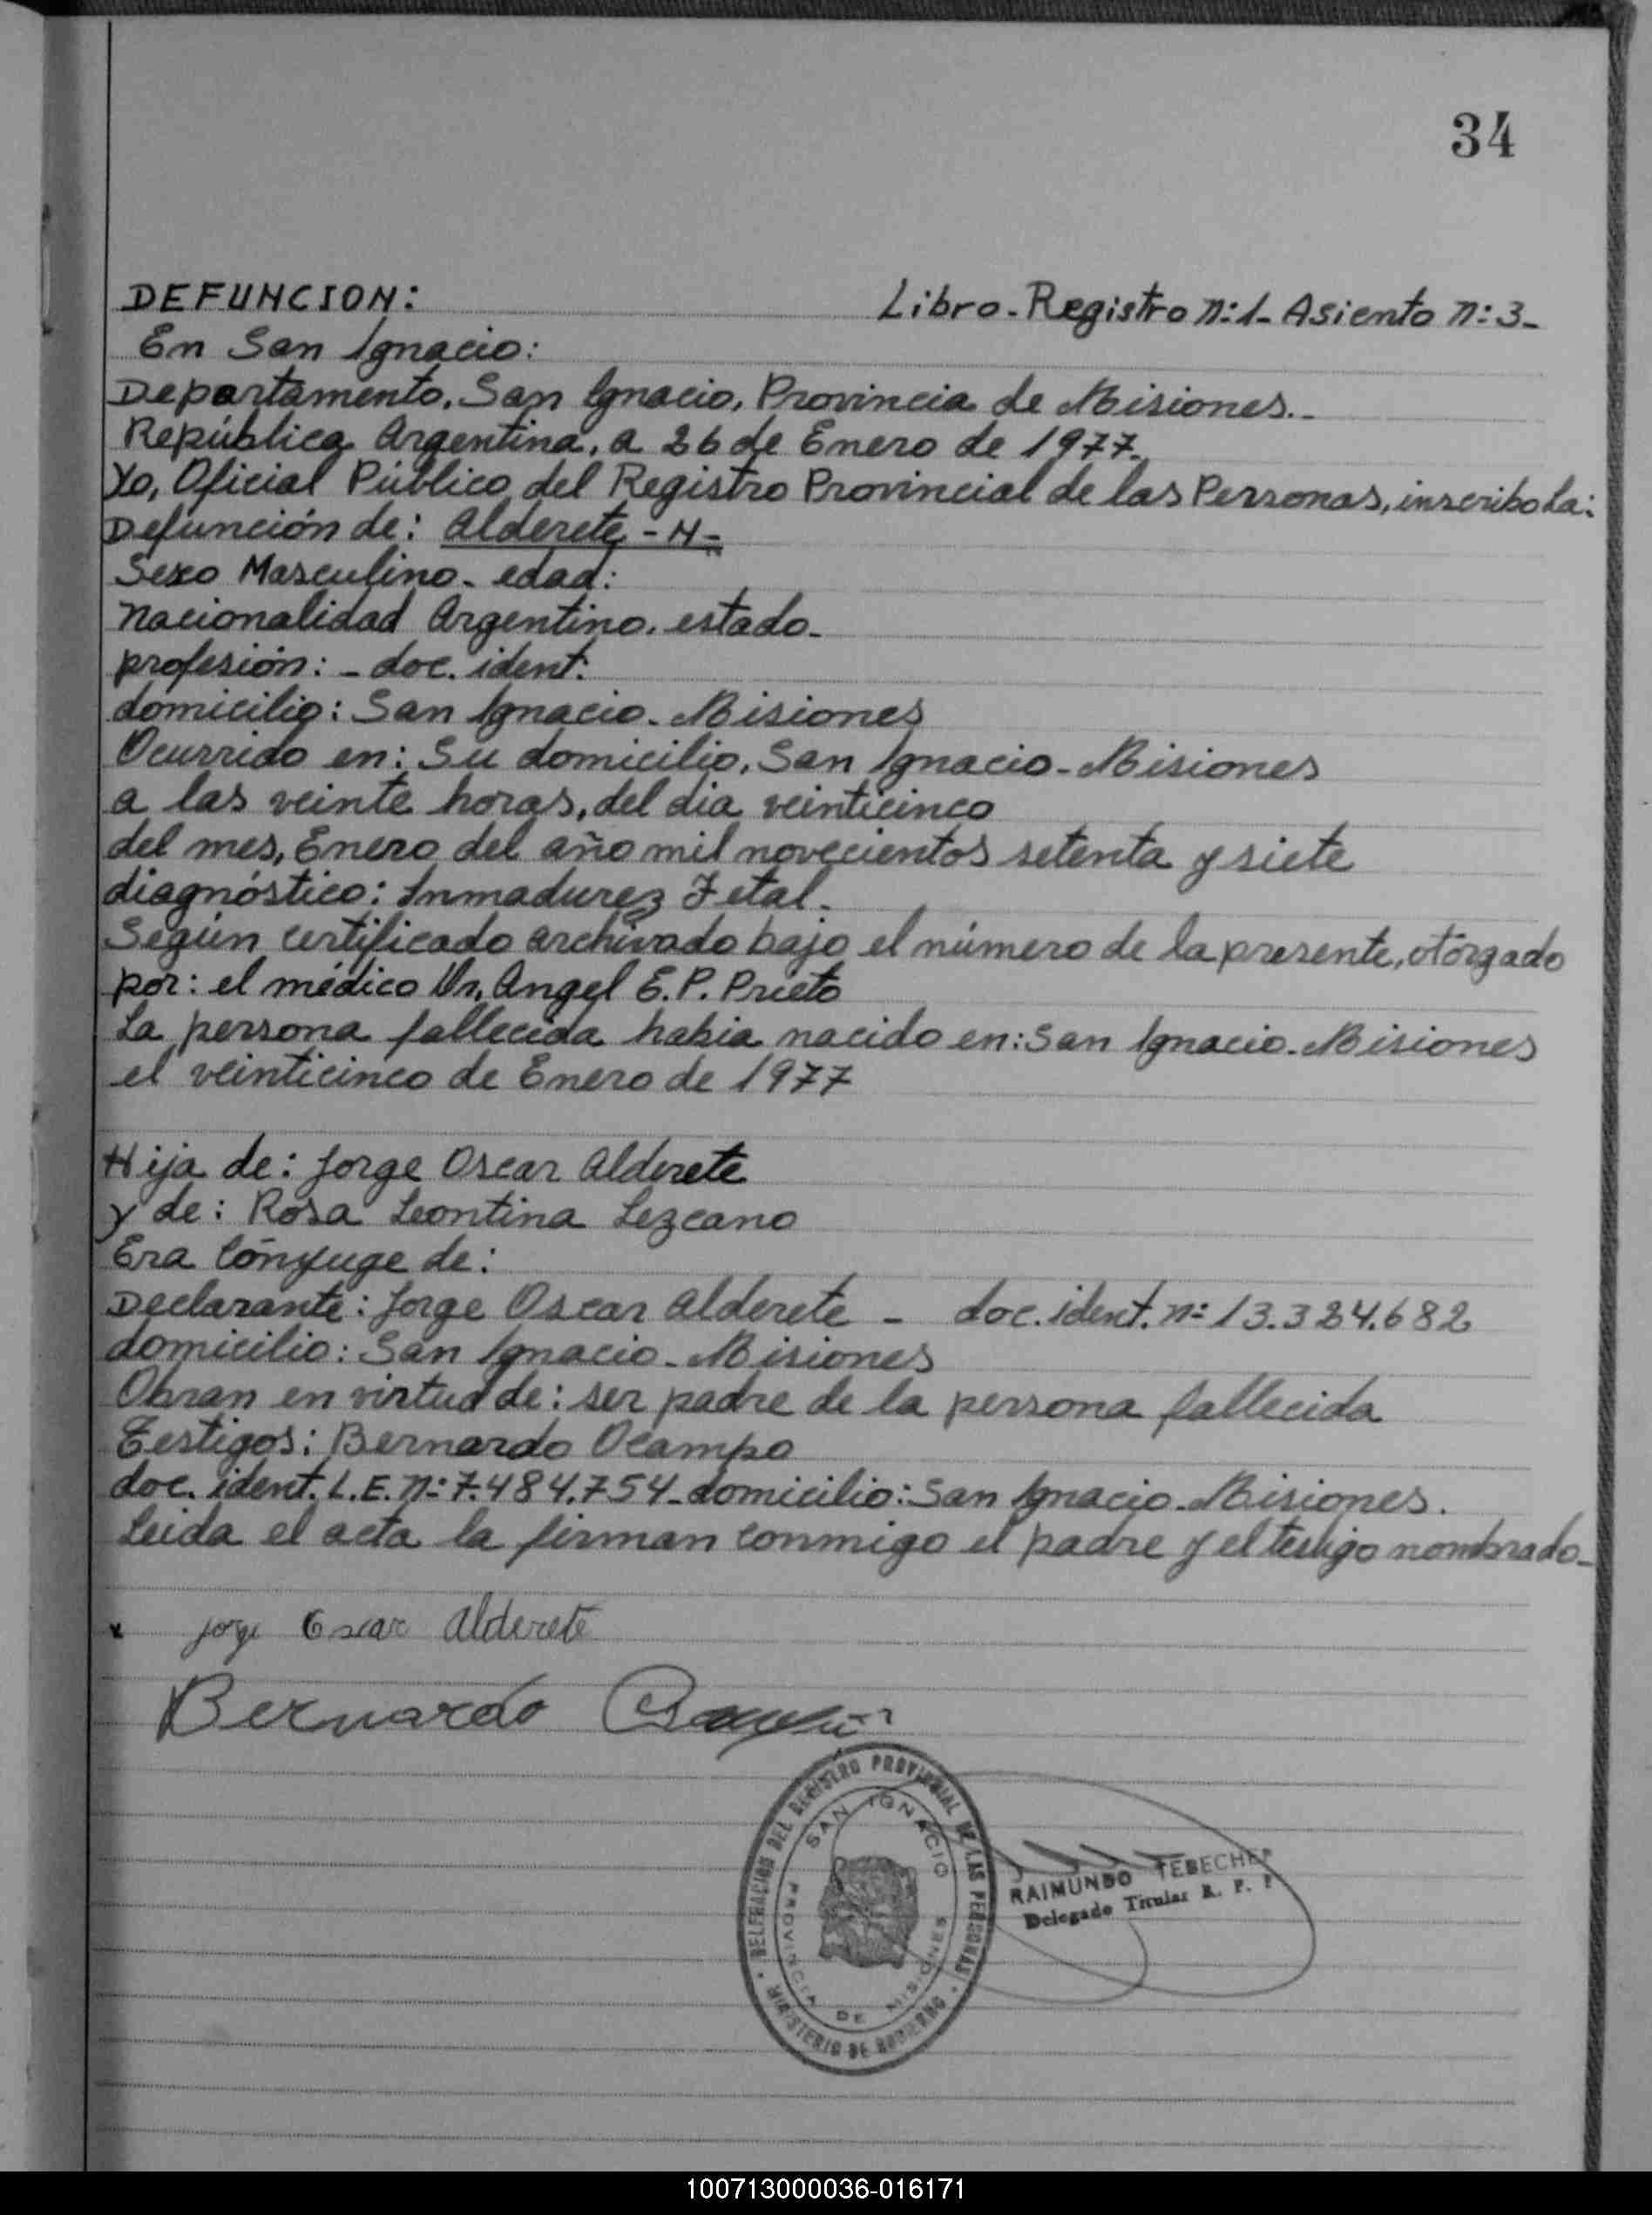 34
DEFUNCION: Libro-Registro n:1- Asiento n:3-
En San Ignacio:
Departamento, San Ignacio, Provincia de Misiones.-
República Argentina, a 26 de Enero de 1977.
Yo, Oficial Público del Registro Provincial de las Personas, inscribo la:
Defunción de: Alderete -N-
Sexo Masculino- edad:
nacionalidad Argentino, estado-
profesión: - doc. ident:
domicilio: San Ignacio- Misiones
Ocurrido en: Su domicilio, San Ignacio- Misiones
a las veinte horas, del dia veinticinco
del mes, Enero del año mil novecientos setenta y siete
diagnóstico: Inmadurez Fetal-
Según certificado archivado bajo el número de la presente, otorgado
por: el médico Dr. Angel E.P. Prieto
La persona fallecida habia nacido en: San Ignacio- Misiones
el veinticinco de Enero de 1977
Hija de: Jorge Oscar Alderete
y de: Rosa Leontina Lezcano
Era Cónyuge de:
Declarante: Jorge Oscar Alderete - doc. ident. n= 13.324.682
domicilio: San Ignacio- Misiones
Obran en virtud de: ser padre de la persona fallecida
Testigos: Bernardo Ocampo
doc. ident. L.E. n: 7.484.754- domicilio: San Ignacio- Misiones.
Leida el acta la firman conmigo el padre y el testigo nombrado-
x Jorge Oscar Alderete
Bernardo
DELEGACION DEL REGISTRO PROVINCIAL DE LAS PERSONAS
SAN IGNACIO
PROVINCIA DE MISIONES
MINISTERIO DE GOBIERNO
RAIMUNDO TEBECHER
Delegado Titular R. P. P
100713000036-016171